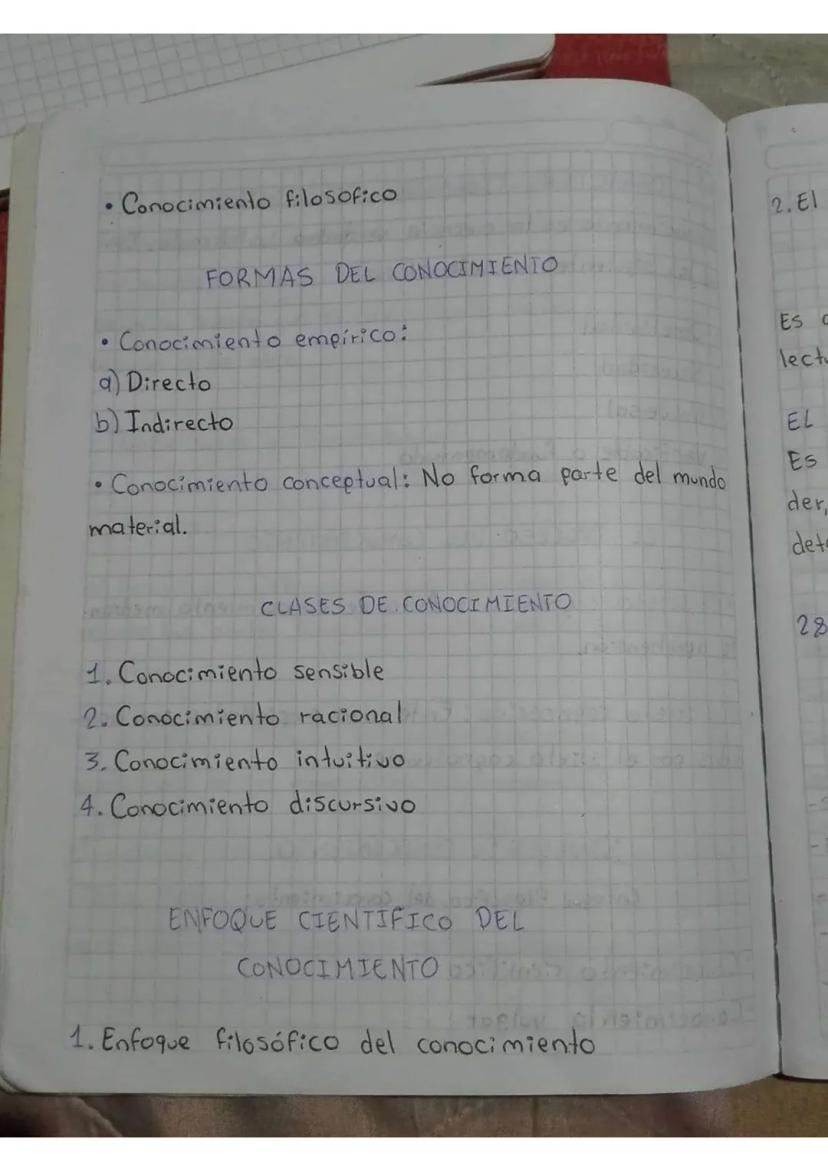 • Conocimiento filosofico
FORMAS DEL CONOCIMIENTO
• Conocimiento empírico:
a) Directo
b) Indirecto
• Conocimiento conceptual: No forma parte del mundo
material.
CLASES DE CONOCIMIENTO
1. Conocimiento sensible
2. Conocimiento racional
3. Conocimiento intuitivo
4. Conocimiento discursivo
ENFOQUE CIENTIFICO DEL
CONOCIMIENTO
1. Enfoque filosófico del conocimiento
2. El
Es
EL
Es
der,
28